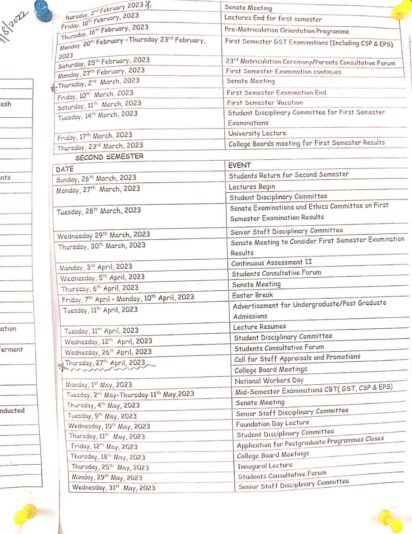 /8/2022
Thursday, 2nd February, 2023 Senate Meeting
Friday, 10th February, 2023 Lectures End for first semester
Thursday, 16th February, 2023 Pre-Matriculation Orientation Programme
Monday 20th February -Thursday 23rd February, First Semester GST Examinations (Including CSP & EPS)
2023
Saturday, 25th February, 2023 23rd Matriculation Ceremony/Parents Consultative Forum
Monday, 27th February, 2023 First Semester Examination continues
Thursday, 2nd March, 2023 Senate Meeting
Friday, 10th March, 2023 First Semester Examination End
Saturday, 11th March, 2023 First Semester Vacation
Tuesday, 14th March, 2023 Student Disciplinary Committee for First Semester
Examinations
Friday, 17th March, 2023 University Lecture
Thursday, 23rd March, 2023 College Boards meeting for First Semester Results
SECOND SEMESTER
DATE EVENT
Sunday, 26th March, 2023 Students Return for Second Semester
Monday, 27th March, 2023 Lectures Begin
Student Disciplinary Committee
Tuesday, 28th March, 2023 Senate Examinations and Ethics Committee on First
Semester Examination Results
Wednesday 29th March, 2023 Senior Staff Disciplinary Committee
Thursday, 30th March, 2023 Senate Meeting to Consider First Semester Examination
Results
Continuous Assessment II
Monday, 3rd April, 2023 Students Consultative Forum
Wednesday, 5th April, 2023 Senate Meeting
Thursday, 6th April, 2023 Easter Break
Friday, 7th April - Monday, 10th April, 2023 Advertisement for Undergraduate/Post Graduate
Tuesday, 11th April, 2023 Admissions
Lecture Resumes
Tuesday, 11th April, 2023 Student Disciplinary Committee
Wednesday, 12th April, 2023 Students Consultative Forum
Wednesday, 26th April, 2023 Call for Staff Appraisals and Promotions
Thursday, 27th April, 2023 College Board Meetings
National Workers Day
Monday, 1st May, 2023 Mid-Semester Examinations CBT( GST, CSP & EPS)
Tuesday, 2nd May-Thursday 11th May,2023 Senate Meeting
Thursday, 4th May, 2023 Senior Staff Disciplinary Committee
Tuesday, 9th May, 2023 Foundation Day Lecture
Wednesday, 10th May, 2023 Student Disciplinary Committee
Thursday, 11th May, 2023 Application for Postgraduate Programmes Closes
Friday, 12th May, 2023 College Board Meetings
Thursday, 18th May, 2023 Inaugural Lecture
Thursday, 25th May, 2023 Students Consultative Forum
Monday, 29th May, 2023 Senior Staff Disciplinary Committee
Wednesday, 31st May, 2023
esh
nts
ation
ferment
nducted